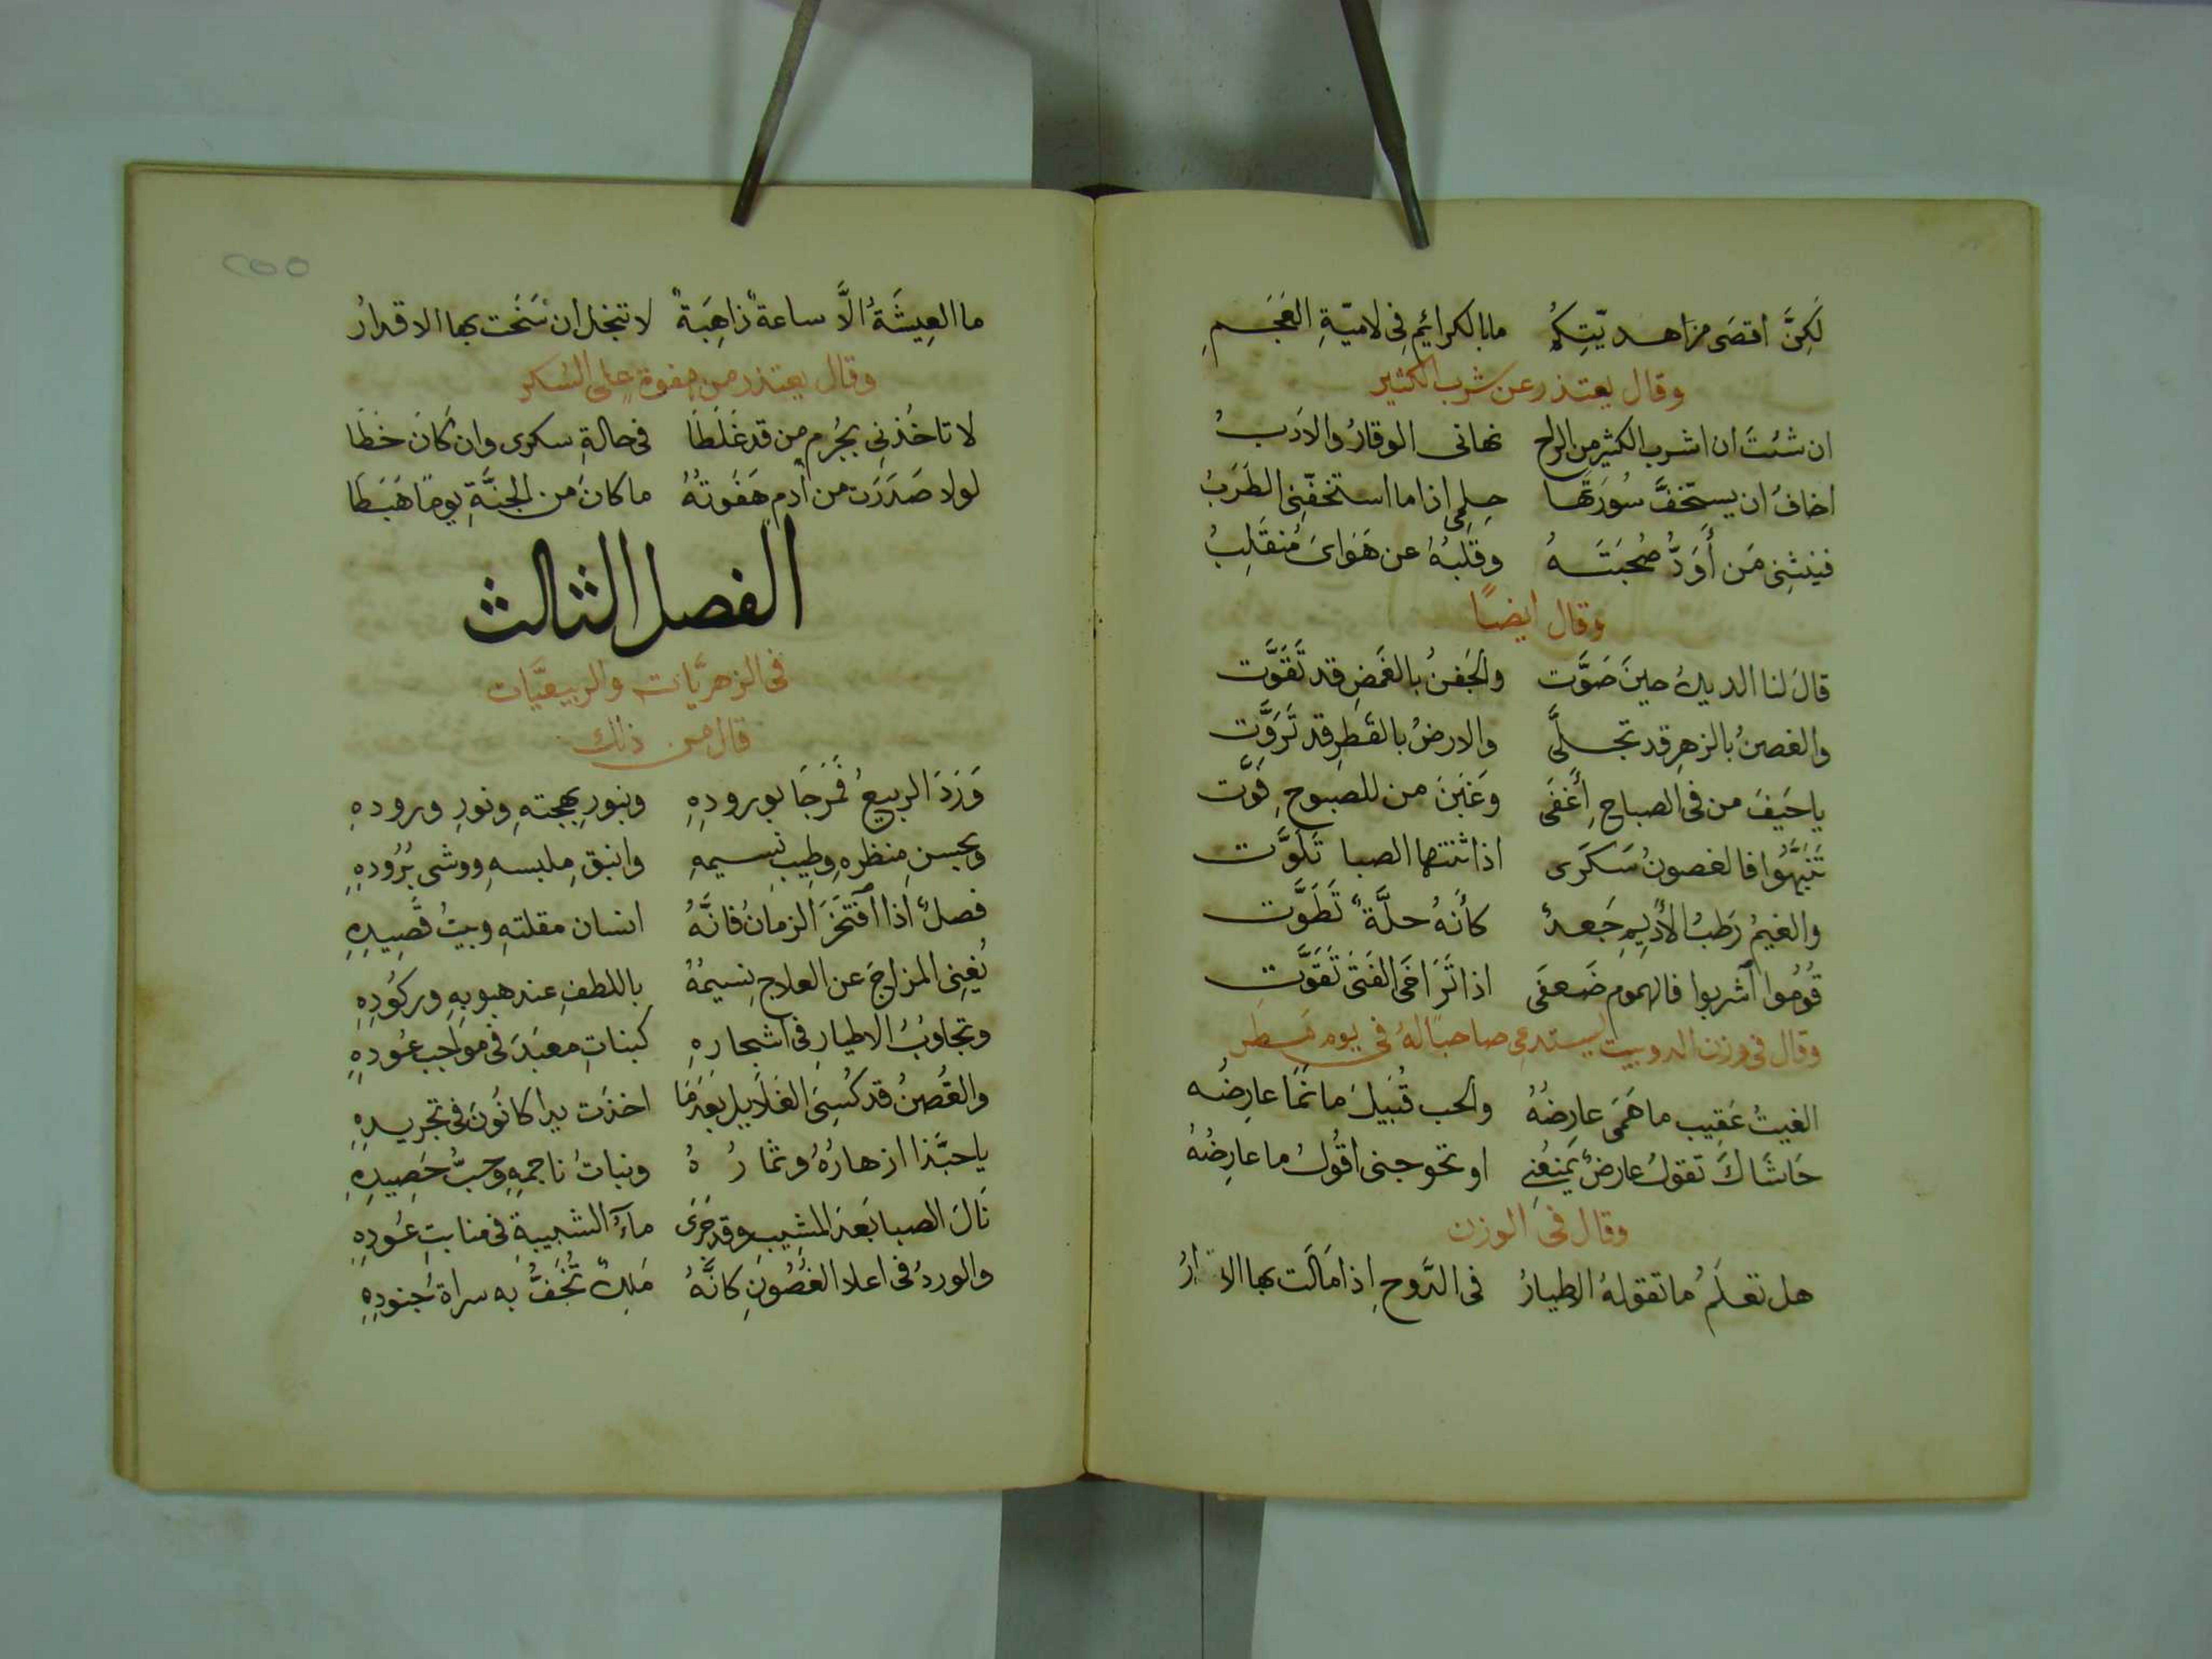 لَكِنَّ اقصَى مزَاهـد يّتِكُم مابالكرائم فى لاميّةِ العَجَـمِ
وقال يعتذر عن شرب الكثير
ان شئتَ ان اشرب الكثير من الراح نهانى الوقارُ والادَبُ
اخافُ ان يستخفَّ سُورَتَها حِلِمى اذا ما استخفّنى الطَرَبُ
فينثنِى مَن أَوَدُّ صُحبَتَـهُ وقَلبُهُ عن هَوَاىَ مُنقَلِبُ
وقال ايضًا
قالَ لنا الديكُ حينَ صَوَّت والجَفنُ بالغَمضِ قد تَقَوَّت
والغصنُ بالزهرِ قد تجلَّى والارضُ بالقَطرِ قد تَرَوَّت
ياحَيفَ من فى الصباحِ أَغفَى وغَبنَ من للصبوحِ فَوَّت
تَنَبَّهُوا فالغصونُ سَكَرَى اذا ثنتها الصبا تَلَوَّت
والغيمُ رَطبُ الأَدِيمِ جَعدٌ كأَنهُ حلَّةٌ تَطَوَّت
قُومُوا آشربوا فالهموم ضَعفَى اذا تَرَاخَى الفَتَى تَقَوَّت
وقال فى وزن الدوبيت يستدعى صاحبًا لهُ فى يوم مَطِر
الغيثُ عَقِيب ما هَمَى عارِضُهُ والحب قُبَيلَ ما نَمَا عارِضُه
حَاشَاكَ تقولُ عارضٌ يَمنعُنِى او تخوجنى اقُولُ ما عارِضُهُ
وقال فى الوزن
هل تعلَمُ ما تقولهُ الاطيارُ فى الدَّوحِ اذا مَالَت بها
ما العِيشَةُ الَّا ساعةٌ ذاهِبَةٌ لا تبخل ان سَنَحَت بها الاقدارُ
وقال يعتذر من هفوةٍ على السُكر
لا تاخُذنِى بجُرم من قد غَلَطَا فى حالةِ سكرى وان كَانَ خَطَا
لولا صَدَرَت من آدم هَفوَتُهُ ما كانَ من الجنَّةِ يومًا هَبَطَا
الفصل الثالث
فى الزهريَّات والربيعيَّات
قال من ذلك
وَرَدَ الربيعُ فَمَرحَبَا بورودِهِ وبنورِ بهجتهِ ونورِ ورودهِ
وبحسنِ منظرهِ وطِيبِ نسيمهِ وانيقِ ملبسهِ ووشى بُرُودِهِ
فصلٌ اذا افتَخَرَ الزمانُ فانَّهُ انسان مقلتهِ وبيتُ قَصِيدِهِ
يُغنِى المزاجَ عن العلاج نسيمُهُ باللطفِ عند هبوبهِ وركُودِهِ
وتجاوُبُ الاطيارِ فى اشجارِهِ كبناتِ معبَدَ فى مَواجب عُودِهِ
والغُصنُ قد كُسِىَ الغَلَايل بَعدَمَا اخذَت يدا كانُونَ فى تجريدِهِ
ياحبَّذا ازهارُهُ وثمارُهُ ونباتُ ناجمهِ وحبُّ حَصِيدِهِ
نَالَ الصبا بَعدَ المشيِبِ وقد جَرَى مآءُ الشبيبةِ فى منابتِ عُودِهِ
والوردُ فى اعلا الغُصُونِ كانَّهُ مَلِكٌ تَحُفُّ به سراة جُنودِهِ
٢٥٥